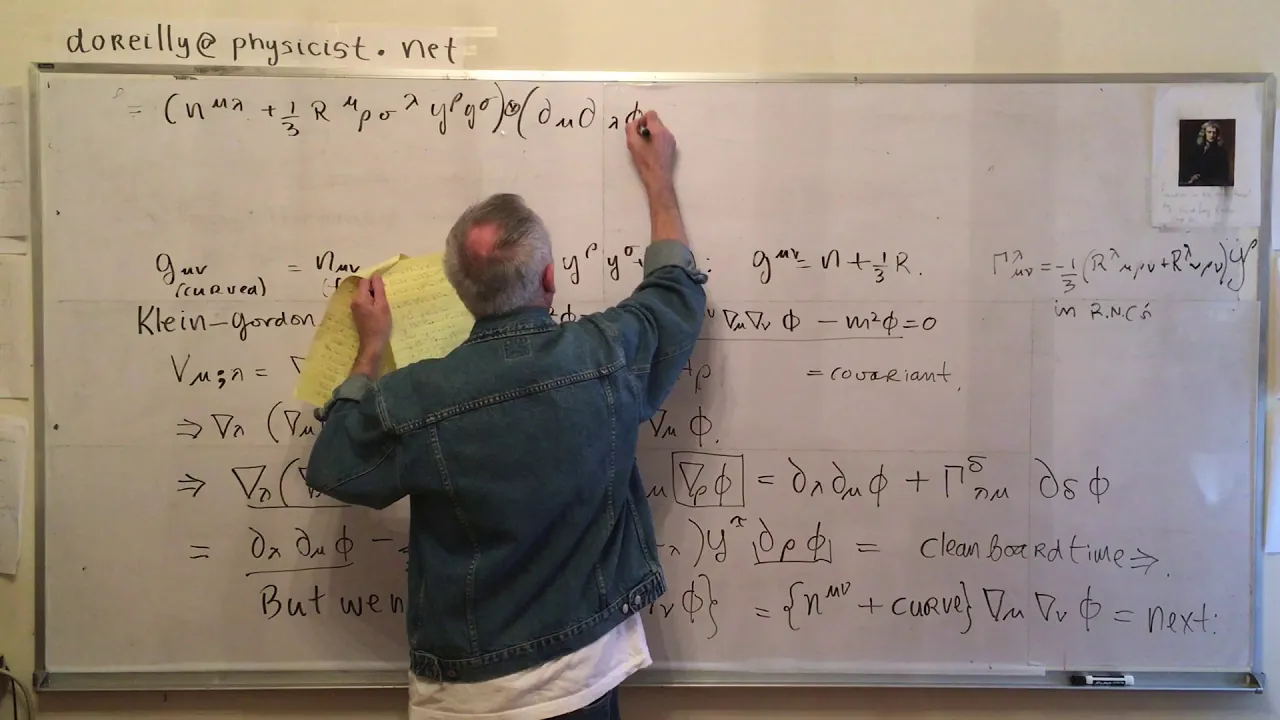 doreilly@physicist.net
= (η^{μλ} + 1/3 R^μ_{ρσ}^λ y^ρ y^σ) ⊗ (∂_μ ∂_λ φ
g_{μν} = η_{μν} y^ρ y^σ : g^{μν} = η + 1/3 R. Γ^λ_{μν} = -1/3 (R^λ_{μρν} + R^λ_{νρμ}) y^ρ
(curved) in R.N.C's
Klein-Gordon ∇_μ ∇_ν φ - m²φ = 0
V_{μ;λ} = = covariant.
⇒ ∇_λ (∇_μ ∇_μ φ.
⇒ ∇_λ (∇_μ ∇_ρ φ = ∂_λ ∂_μ φ + Γ^δ_{λμ} ∂_δ φ
= ∂_λ ∂_μ φ - ) y^π ∂_ρ φ = clean board time ⇒
But we ∇_ν φ} = {η^{μν} + curve} ∇_μ ∇_ν φ = next: